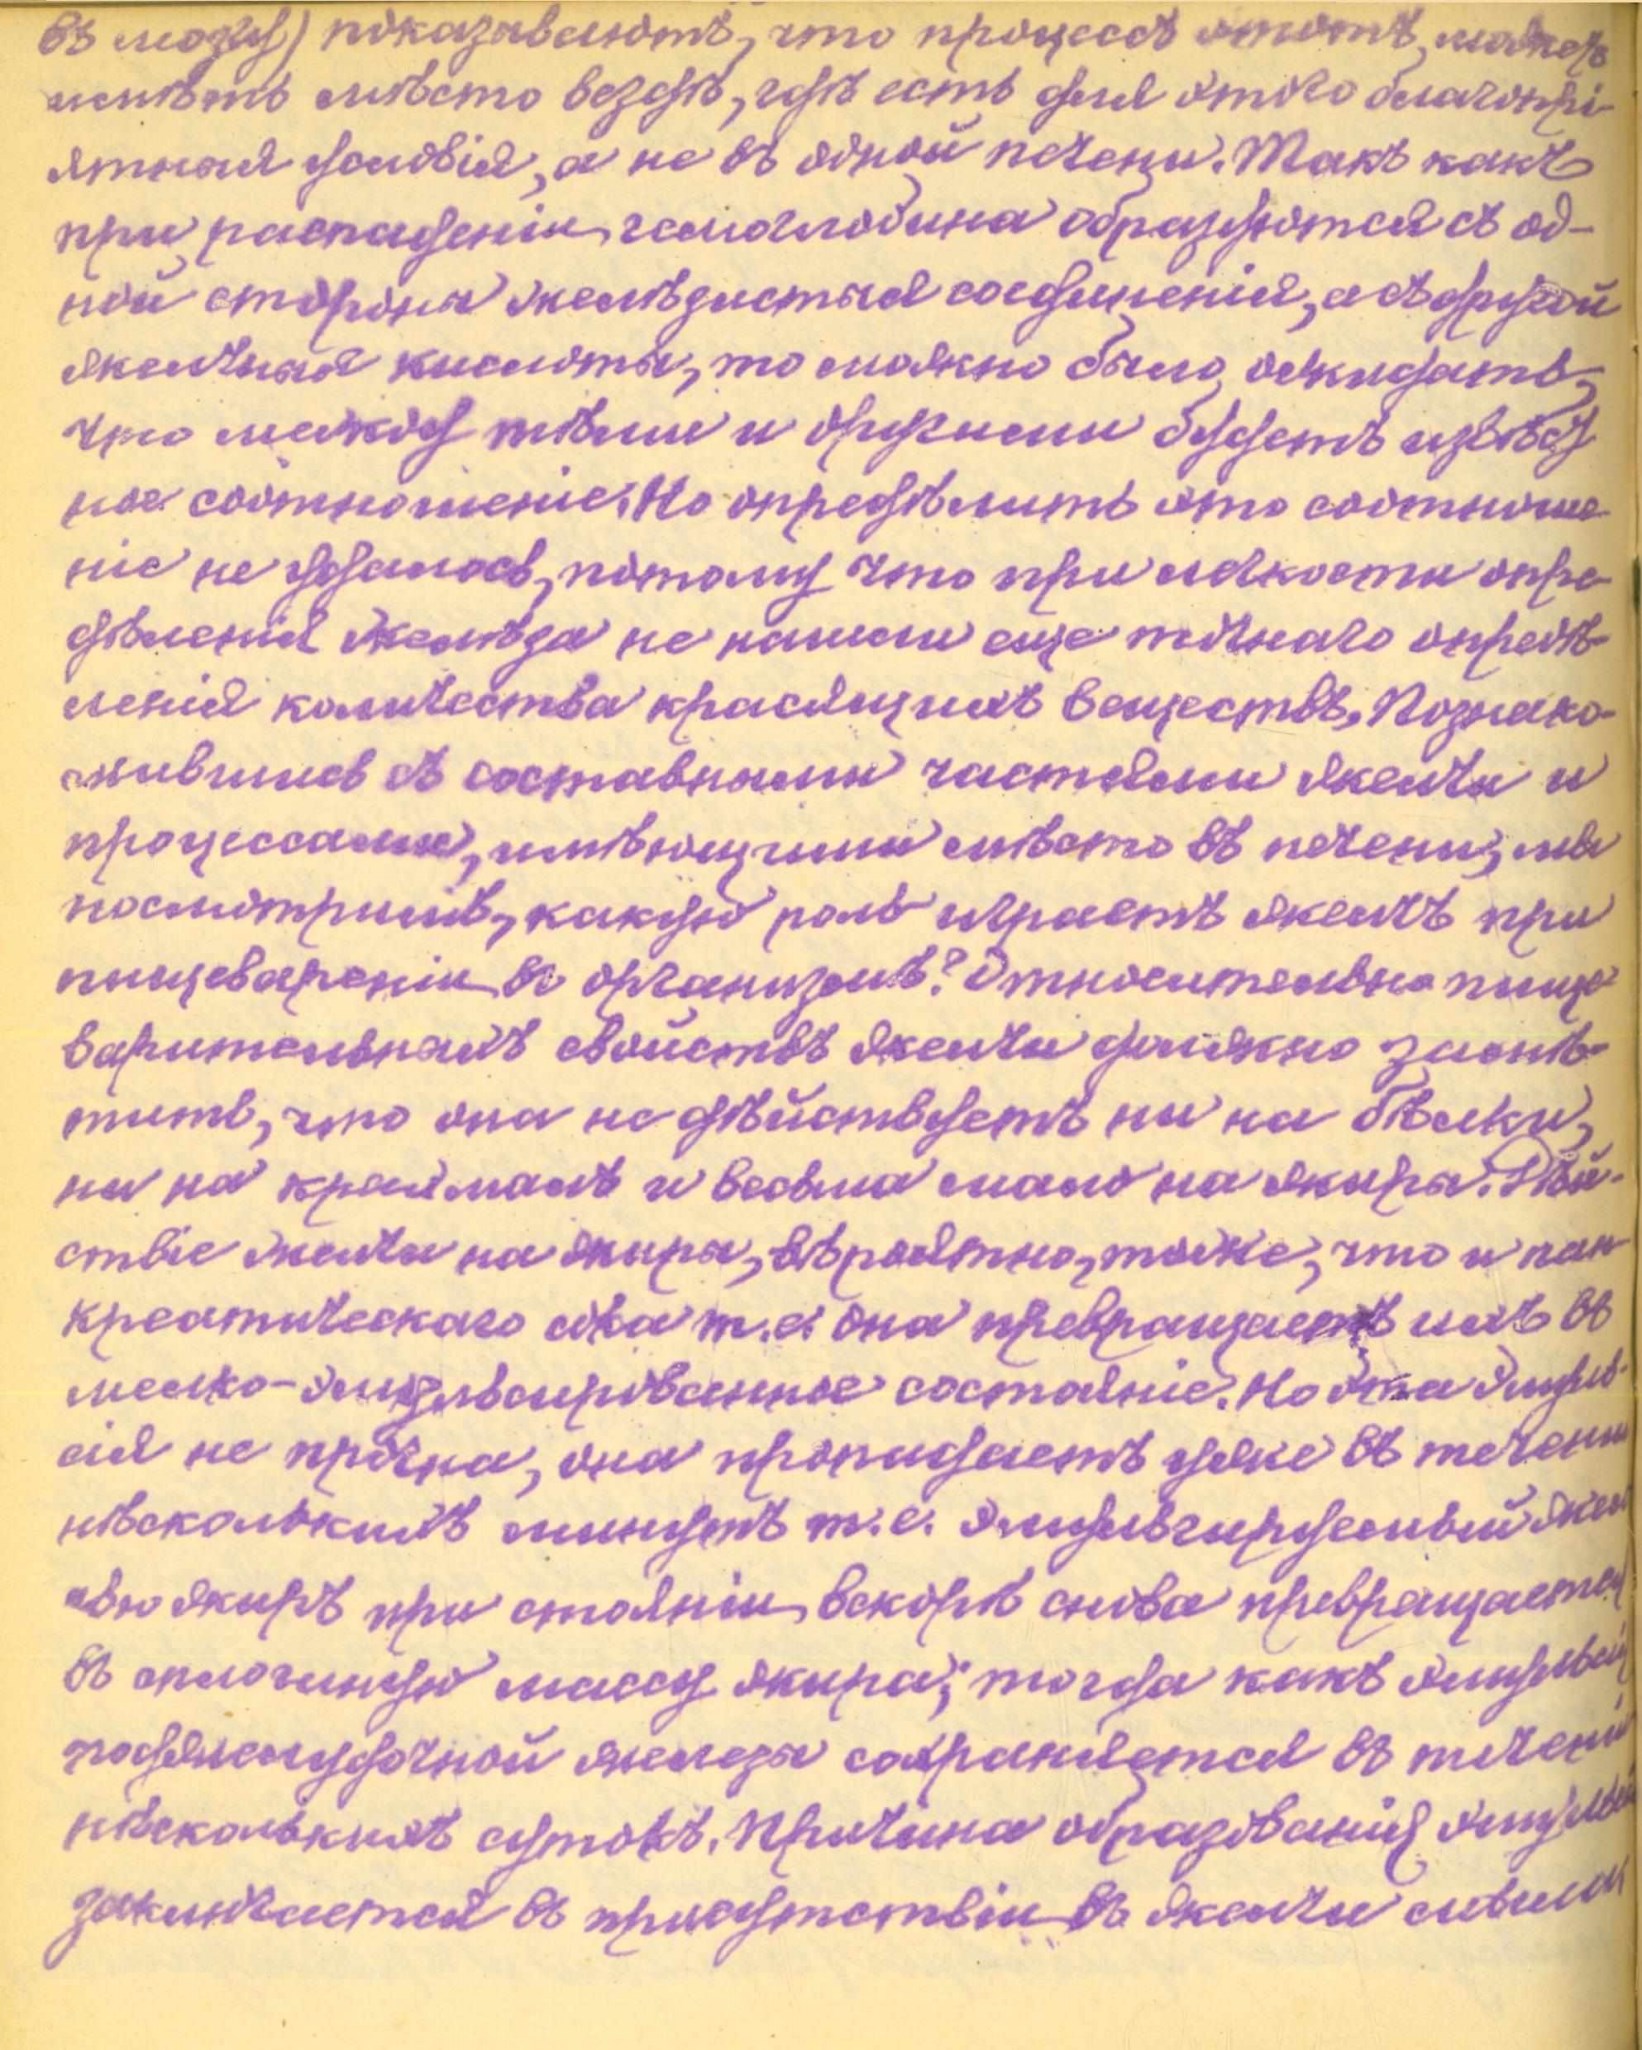 въ мозгу) показываютъ, что процессъ этотъ можетъ
имѣть мѣсто вездѣ, гдѣ есть для этого благопрі-
ятныя условія, а не въ одной печени. Такъ какъ
при распаденіи гемоглобина образуются съ од-
ной стороны желѣзистыя соединенія, а съ другой
желчныя кислоты, то можно было ожидать,
что между тѣми и другими будетъ извѣст
ное соотношеніе. Но опредѣлить это соотноше-
ніе не удалось, потому что при легкости опре-
дѣленія желѣза не нашли еще точнаго опредѣ-
ленія количества красящихъ веществъ. Познако-
мившись съ составными частями желчи и
процессами, имѣющими мѣсто въ печени, мы
посмотримъ, какую роль играетъ желчь при
пищевареніи въ организмѣ? Относительно пище-
варительныхъ свойствъ желчи должно замѣ-
тить, что она не дѣйствуетъ ни на бѣлки,
ни на крахмалъ и весьма мало на жиры. Дѣй-
ствіе желчи на жиры, вѣроятно, тоже, что и пан-
креатическаго сока т.е. она превращаетъ ихъ въ
мелко-эмульсированное состояніе. Но эта эмуль-
сія не прочна, она пропадаетъ уже въ теченіи
нѣсколькихъ минутъ т.е. эмульгируемый жел
чью жиръ при стояніи вскорѣ снова превращается
въ сплошную массу жира; тогда какъ эмульсія
поджелудочной железы сохраняется въ теченіи
нѣсколькихъ сутокъ. Причина образованія эмульсіи
заключается въ присутствіи въ желчи